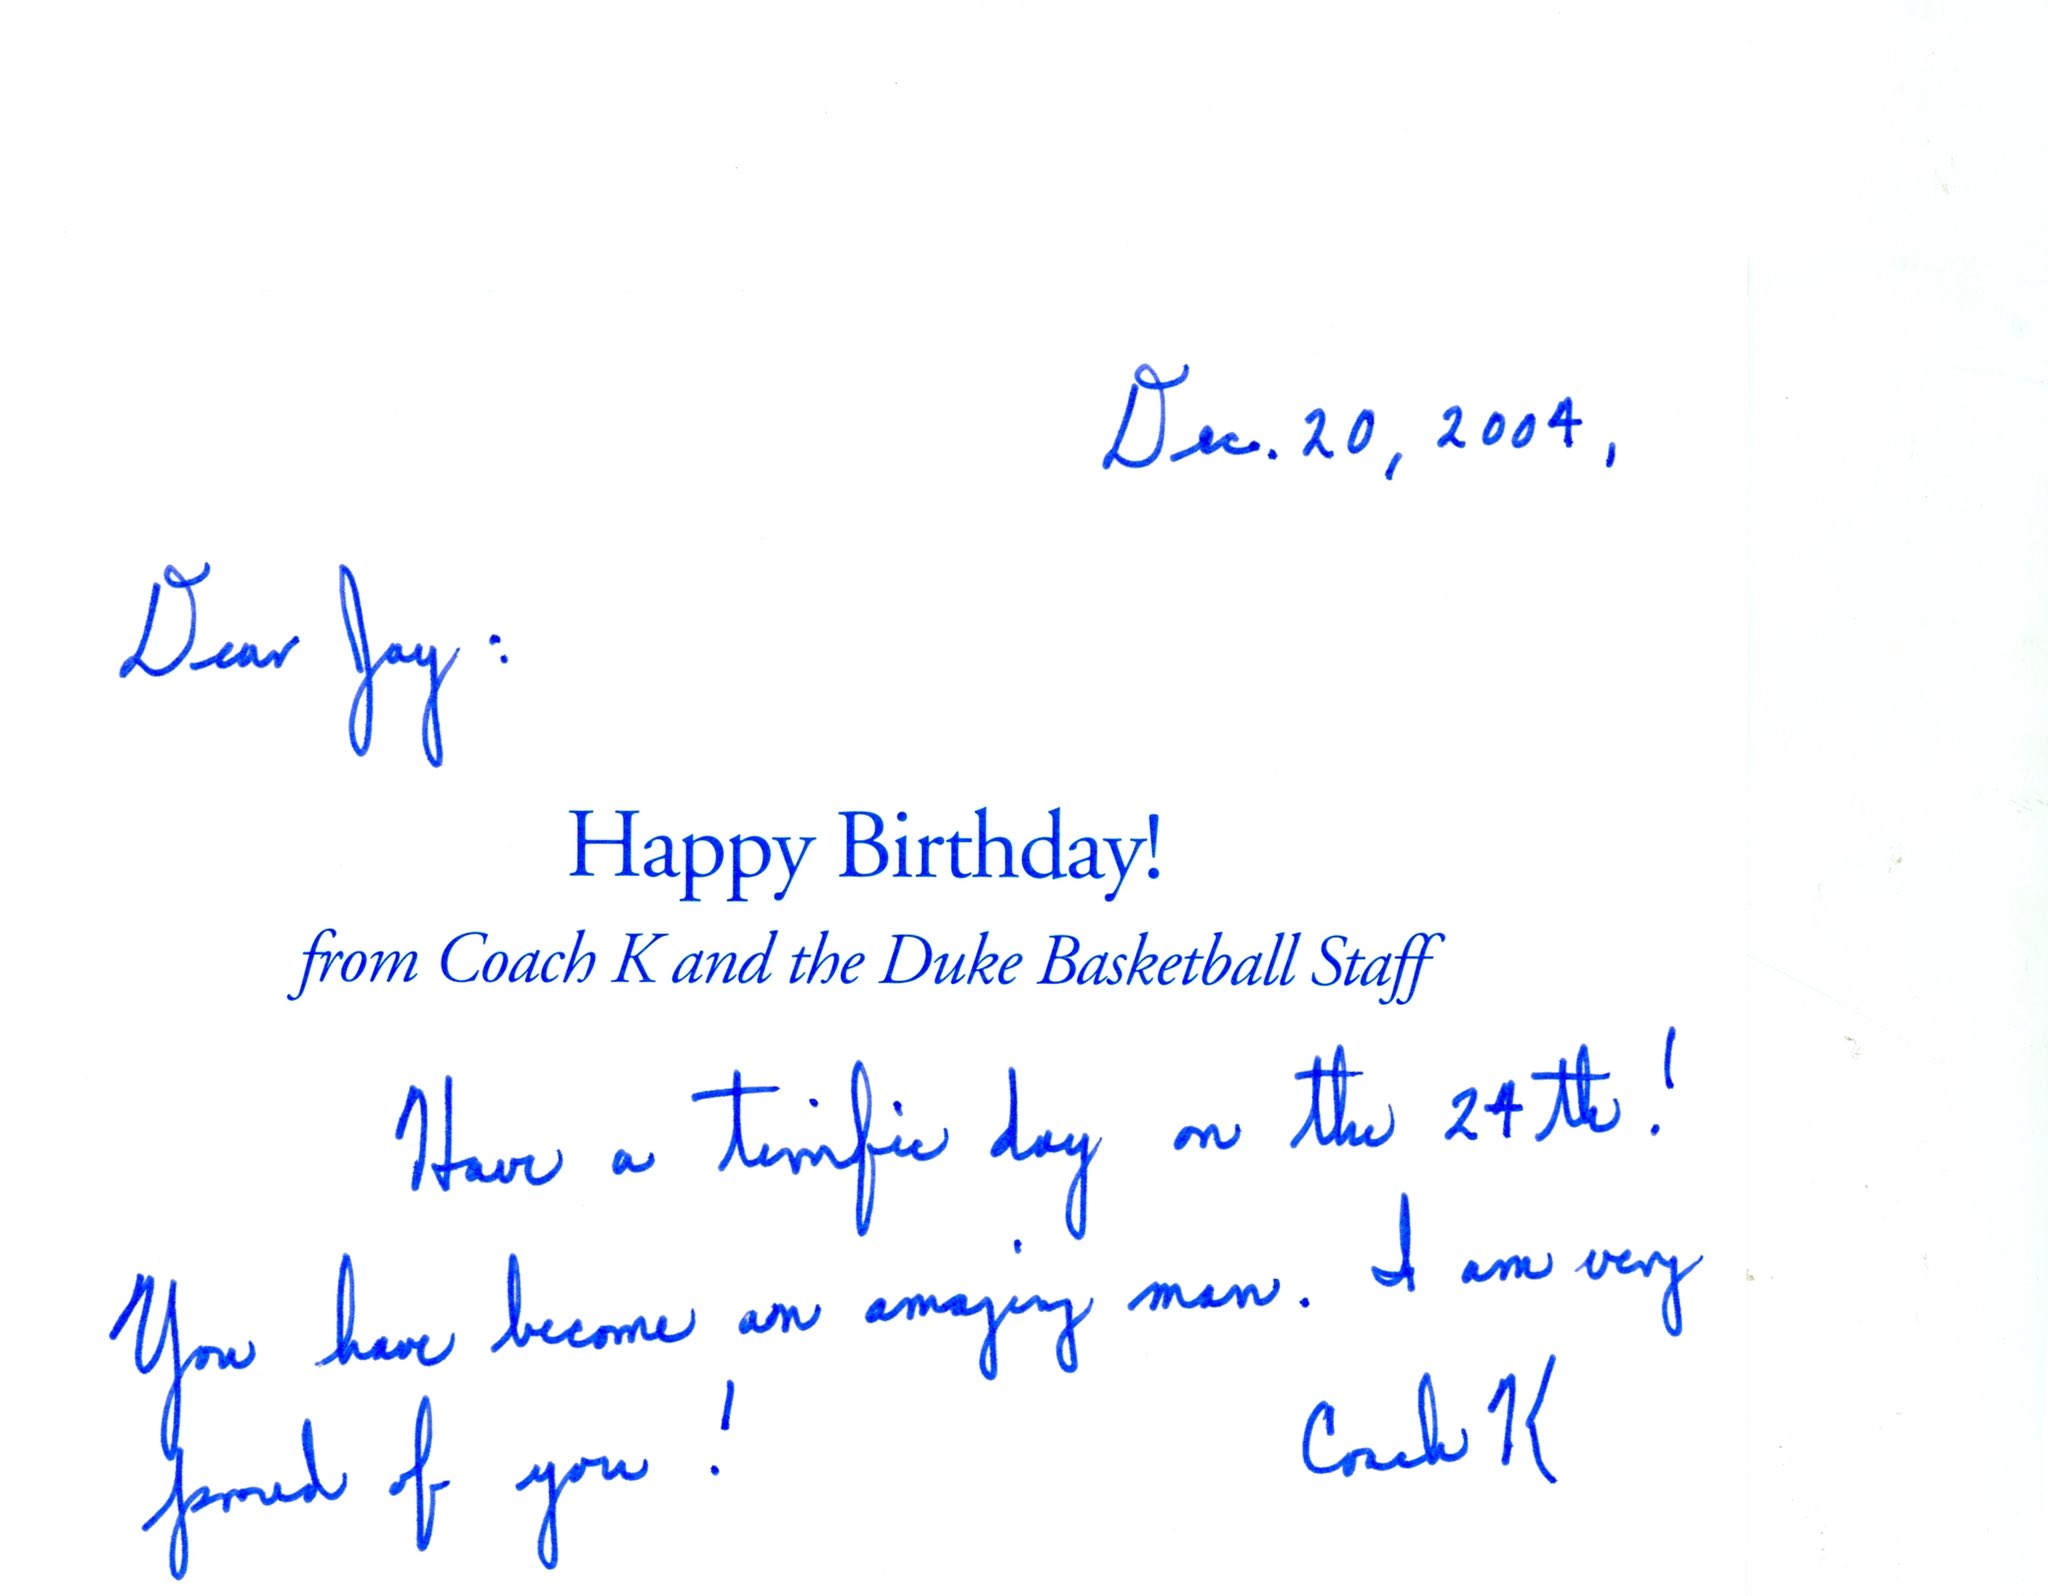 Dec. 20, 2004,
Dear Jay:
Happy Birthday!
from Coach K and the Duke Basketball Staff
Have a terrific day on the 24th!
You have become an amazing man. I am very
proud of you!
Coach K